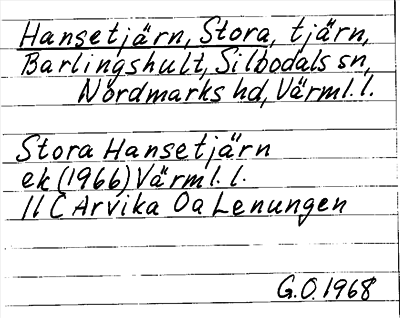 Hansetjärn, Stora, tjärn,
Barlingshult, Silbodals sn,
Nordmarks hd, Värml.l.
Stora Hansetjärn
ek (1966) Värml.l.
11 C Arvika Oa Lenungen
G.O. 1968